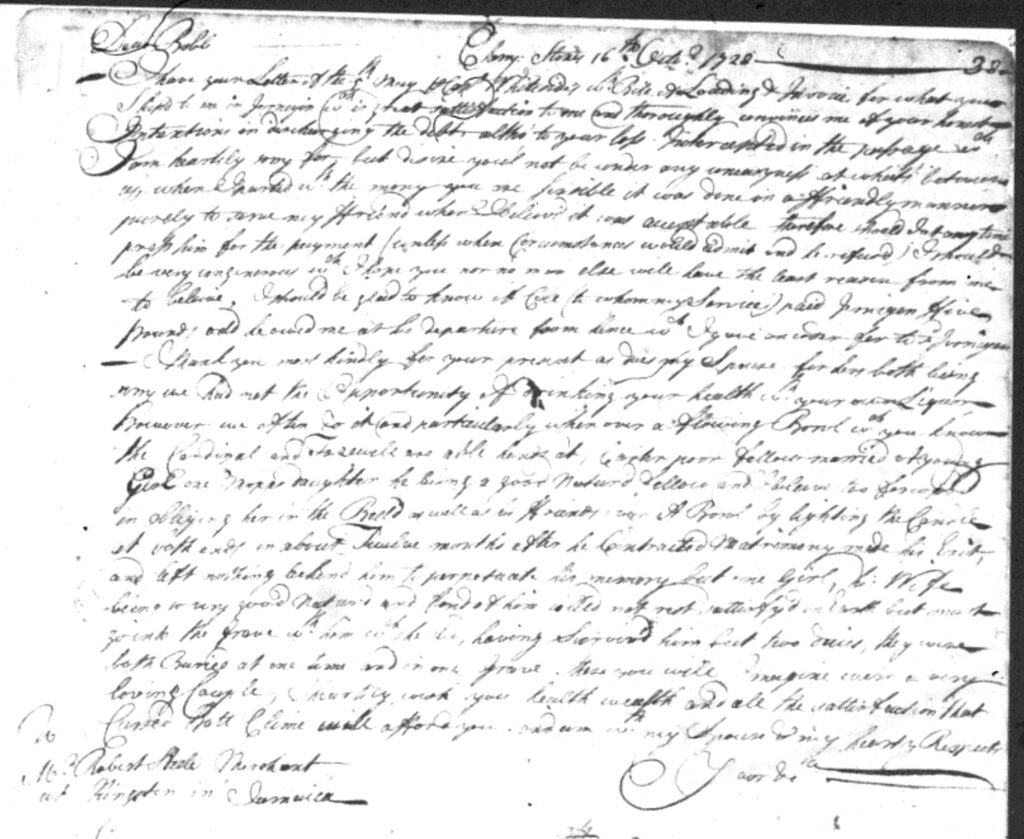 Dear Robt 16th Octor 1728 38
I have your Letter of the May & Capt Whitesides wth Bill of Loading & Invoice for what you
Ship'd to me in wch is great satisfaction to me and thoroughly convinces me of your honest
Intentions in discharging the debt altho to your loss Intercepted in the passage wch
I am heartily sorry for, but desire you'l not be under any uneasyness at what's between
us, when I parted wth the mony you are sensible it was done in a ffriendly manner
purely to serve my ffriend where I believ'd it was acceptable therefore should I at any time
press him for the payment (unless when Circumstances would admit and he refused) I should
be very ungenerous wch I hope you nor no man else will have the least reason from me
to believe, I should be glad to know if (to whom my Service) paid Jernigan ffive
Pounds odd he owed me at his departure from hence wch I gave an order for to Jernigan
I thank you most kindly for your present as does my Spouse for hers both being
sorry we had not the Opportunity of drinking your health in your own Liquor
However we often do it and particularly when over a flowing Bowl wch you know
the Cardinal and Farewell are able hands at, poor fellow married a young
Girl one daughter he being a good Natur'd fellow and I believe too forward
in obliging her in the as well as his ffriends over A Bowl by lighting the Candle
at both ends in about Twelve months after he Contracted Matrimony made his Exit,
and left nothing behind him to perpetuate his memory but one Girl, his Wife
being so very good Natur'd and fond of him could not rest sattisfy'd on Earth but must
go into the Grave wth him wch she did, having Surviv'd him but two daies, they were
both Buried at one time and in one Grave these you will Imagine were a very
loving Couple, I heartily wish you health wealth and all the sattisfaction that
Cursed Hott Clime will afford you and am wth my Spouse & my hearty Respects
To
Mr Robert Steele Merchant
att Kingston in Jamaica
Your &c